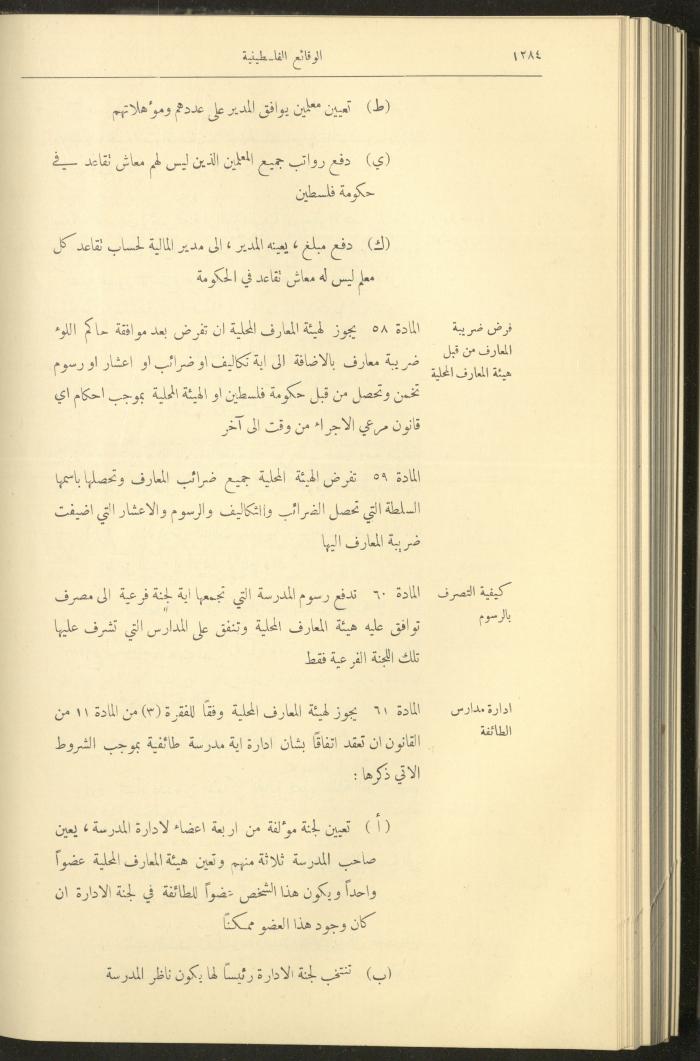 ١٢٨٤
الوقائع الفلسطينية
(ط) تعيين معلمين يوافق المدير على عددهم ومؤهلاتهم
(ي) دفع رواتب جميع المعلمين الذين ليس لهم معاش تقاعد في
حكومة فلسطين
(ك) دفع مبلغ ، يعينه المدير ، الى مدير المالية لحساب تقاعد كل
معلم ليس له معاش تقاعد في الحكومة
فرض ضريبة
المعارف من قبل
هيئة المعارف المحلية
المادة ٥٨ يجوز لهيئة المعارف المحلية ان تفرض بعد موافقة حاكم اللوء
ضريبة معارف بالاضافة الى اية تكاليف او ضرائب او اعشار او رسوم
تخمن وتحصل من قبل حكومة فلسطين او الهيئة المحلية بموجب احكام اي
قانون مرعي الاجراء من وقت الى آخر
المادة ٥٩ تفرض الهيئة المحلية جميع ضرائب المعارف وتحصلها باسمها
السلطة التي تحصل الضرائب والتكاليف والرسوم والاعشار التي اضيفت
ضريبة المعارف اليها
كيفية التصرف
بالرسوم
المادة ٦٠ تدفع رسوم المدرسة التي تجمعها اية لجنة فرعية الى مصرف
توافق عليه هيئة المعارف المحلية وتنفق على المدارس التي تشرف عليها
تلك اللجنة الفرعية فقط
ادارة مدارس
الطائفة
المادة ٦١ يجوز لهيئة المعارف المحلية وفقًا للفقرة (٣) من المادة ١١ من
القانون ان تعقد اتفاقًا بشان ادارة اية مدرسة طائفية بموجب الشروط
الاتي ذكرها :
(أ) تعيين لجنة مؤلفة من اربعة اعضاء لادارة المدرسة ، يعين
صاحب المدرسة ثلاثة منهم وتعين هيئة المعارف المحلية عضواً
واحداً ويكون هذا الشخص عضواً للطائفة في لجنة الادارة ان
كان وجود هذا العضو ممكنًا
(ب) تنتخب لجنة الادارة رئيسًا لها يكون ناظر المدرسة